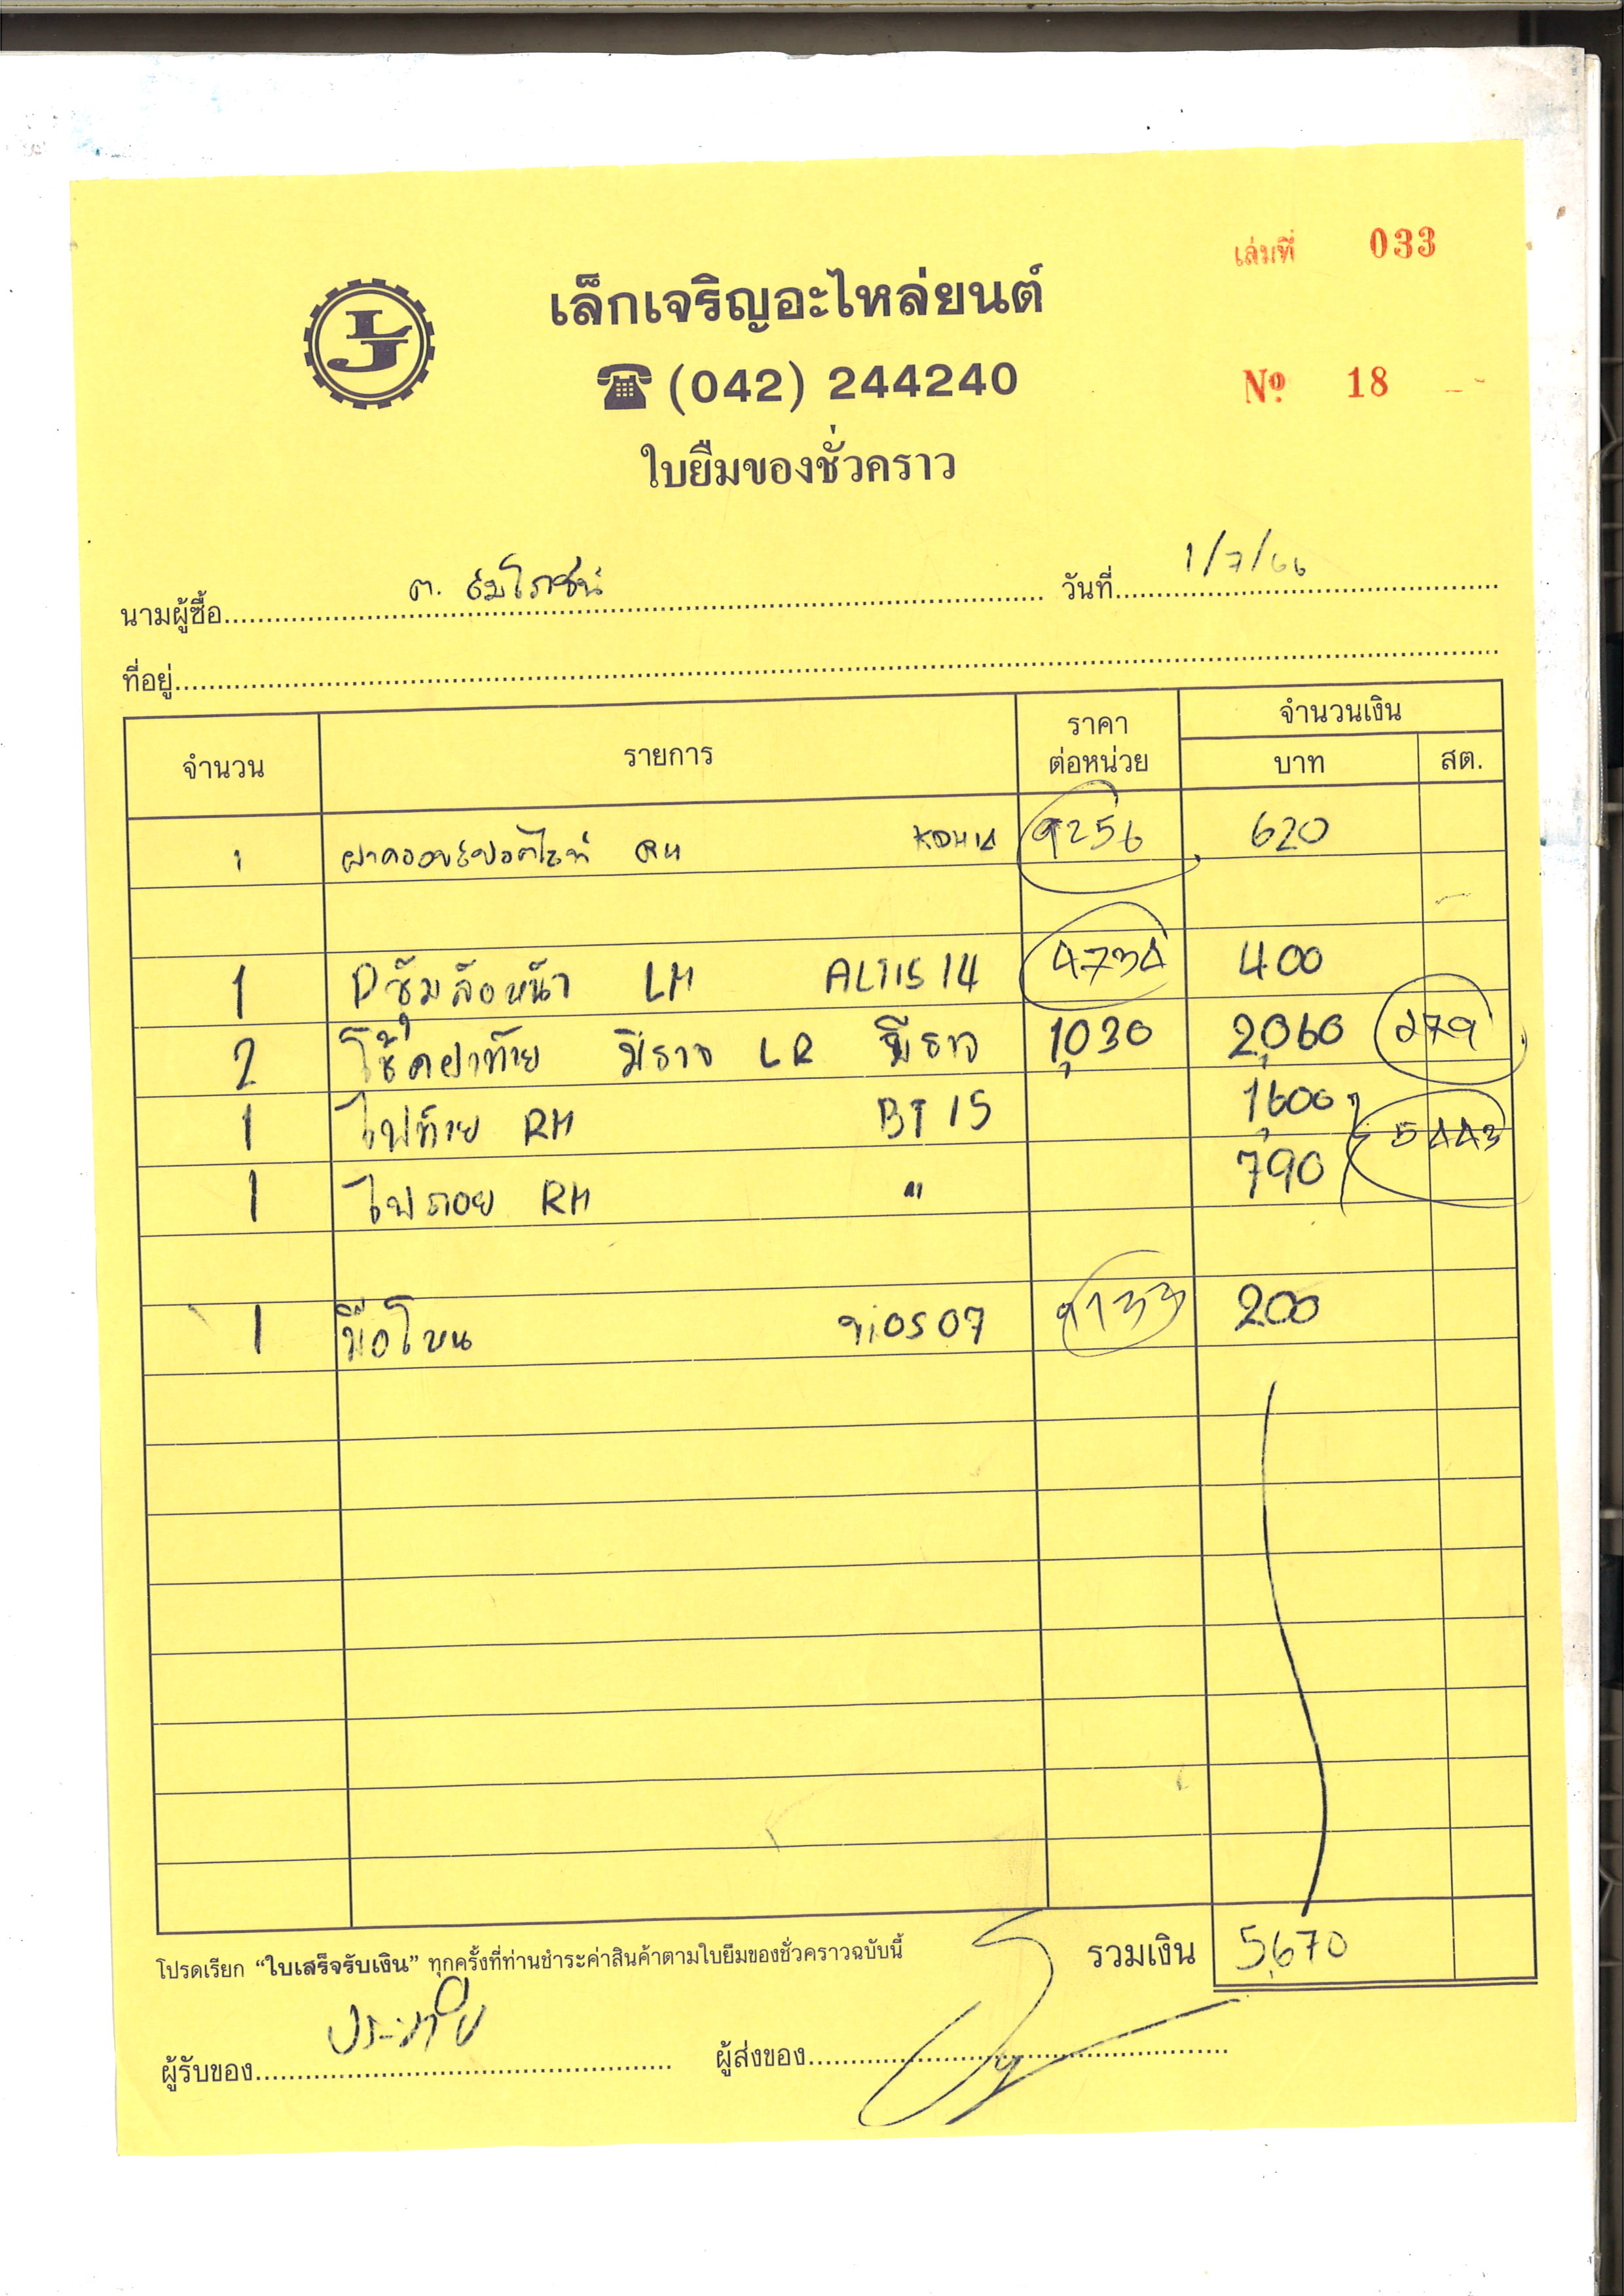 เล่มที่ 033
LJ
เล็กเจริญอะไหล่ยนต์
(042) 244240
Nº 18
ใบยืมของชั่วคราว
นามผู้ซื้อ วันที่ 1/7/66
ที่อยู่
จำนวน รายการ ราคาต่อหน่วย จำนวนเงิน
บาท สต.
1 RH 9256 620
1 Pซุ้มล้อหน้า LH ALTIS 14 4734 400
2 โช้คฝาท้าย LR 1,030 2,060 279
1 ไฟท้าย RH BT 15 1,600 5443
1 ไฟถอย RH " 790
1 มือโหน vios 07 9133 200
โปรดเรียก “ใบเสร็จรับเงิน” ทุกครั้งที่ท่านชำระค่าสินค้าตามใบยืมของชั่วคราวฉบับนี้ รวมเงิน 5,670
ผู้รับของ ผู้ส่งของ